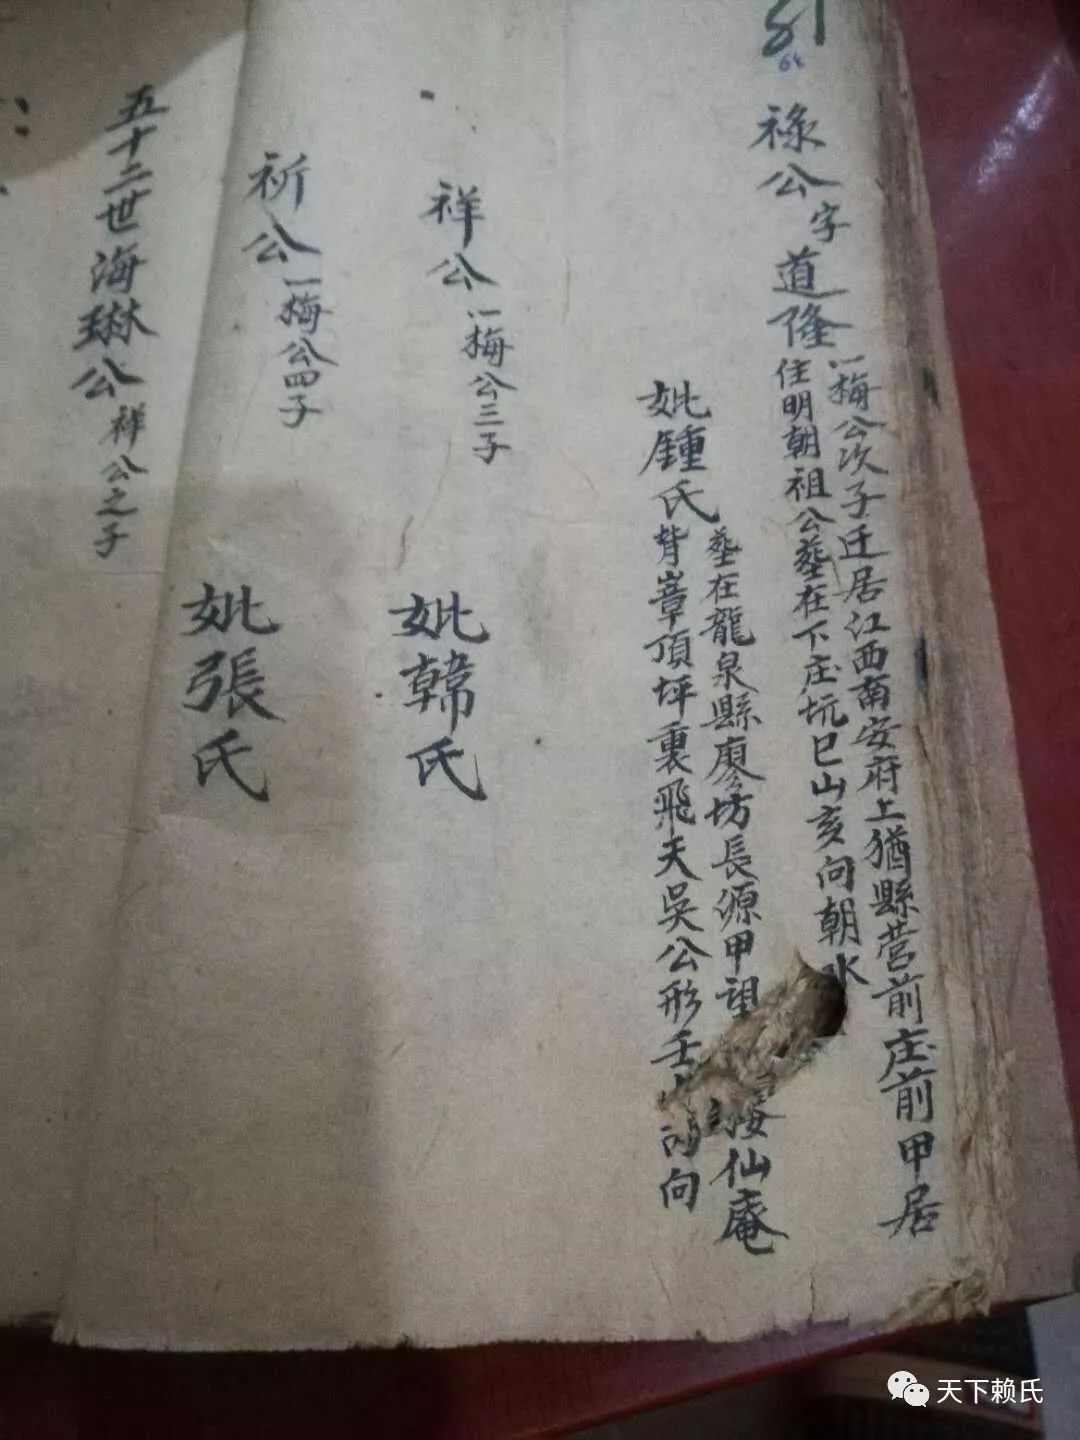 81
64
祿公字道隆
一梅公次子迁居江西南安府上猶縣营前庄前甲居
住明朝祖公墓在下庄坑巳山亥向朝水
妣鍾氏
墓在龍泉縣廖坊長源甲祖
仙庵
背嶂頂坪裏飛天吴公形壬
向
祥公
一梅公三子
妣韓氏
祈公
一梅公四子
妣張氏
五十二世海琳公
祥公之子
天下赖氏